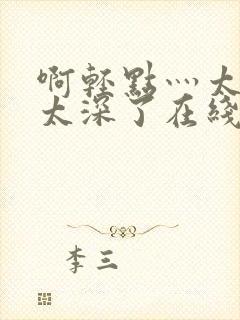 啊輕點灬太
太深了在綫
李三